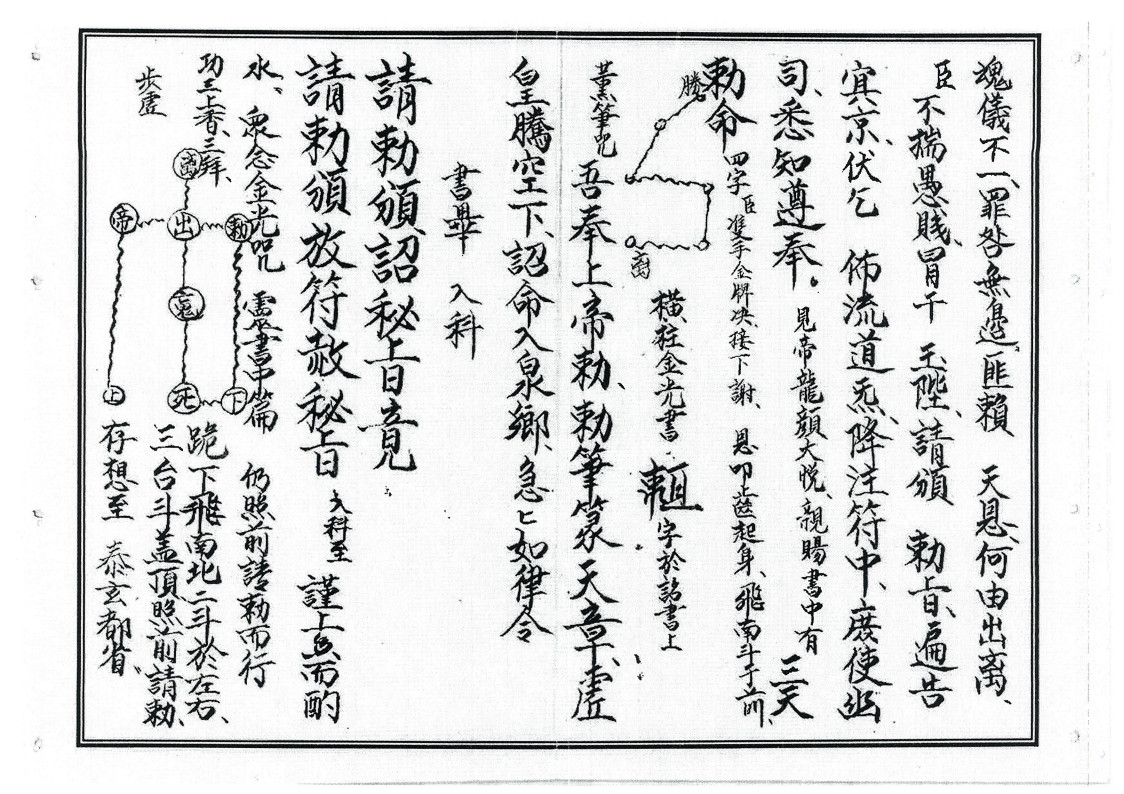 魂儀不一、罪咎無邊、匪賴　天恩、何由出离、
臣不揣愚賤、冒干　玉陛、請頒　勅旨、遍告
冥京、伏乞　佈流道炁、降注符中、庶使幽
司、悉知遵奉。見帝龍顏大悅、親賜書中有　三天
勅命　四字臣雙手金牌决、接下謝、恩叩齒起身、飛南斗于前、
騰
离
橫往金光書　字於詔書上
薰筆咒　吾奉上帝勅、勅筆篆天章、虛
皇騰空下、詔命入泉鄉、急匕如律令
書畢　入科
請勅頒詔秘旨竟
請勅頒放符赦秘旨　入科至　謹上香而酌
水、眾念金光咒　靈書中篇　仍照前請勅而行
功三上香、三拜、　跪下飛南北二斗於左右、
步虛　三台斗盖頂照前請勅、
國
帝　出　勅
死　下
上
存想至　泰玄都省、